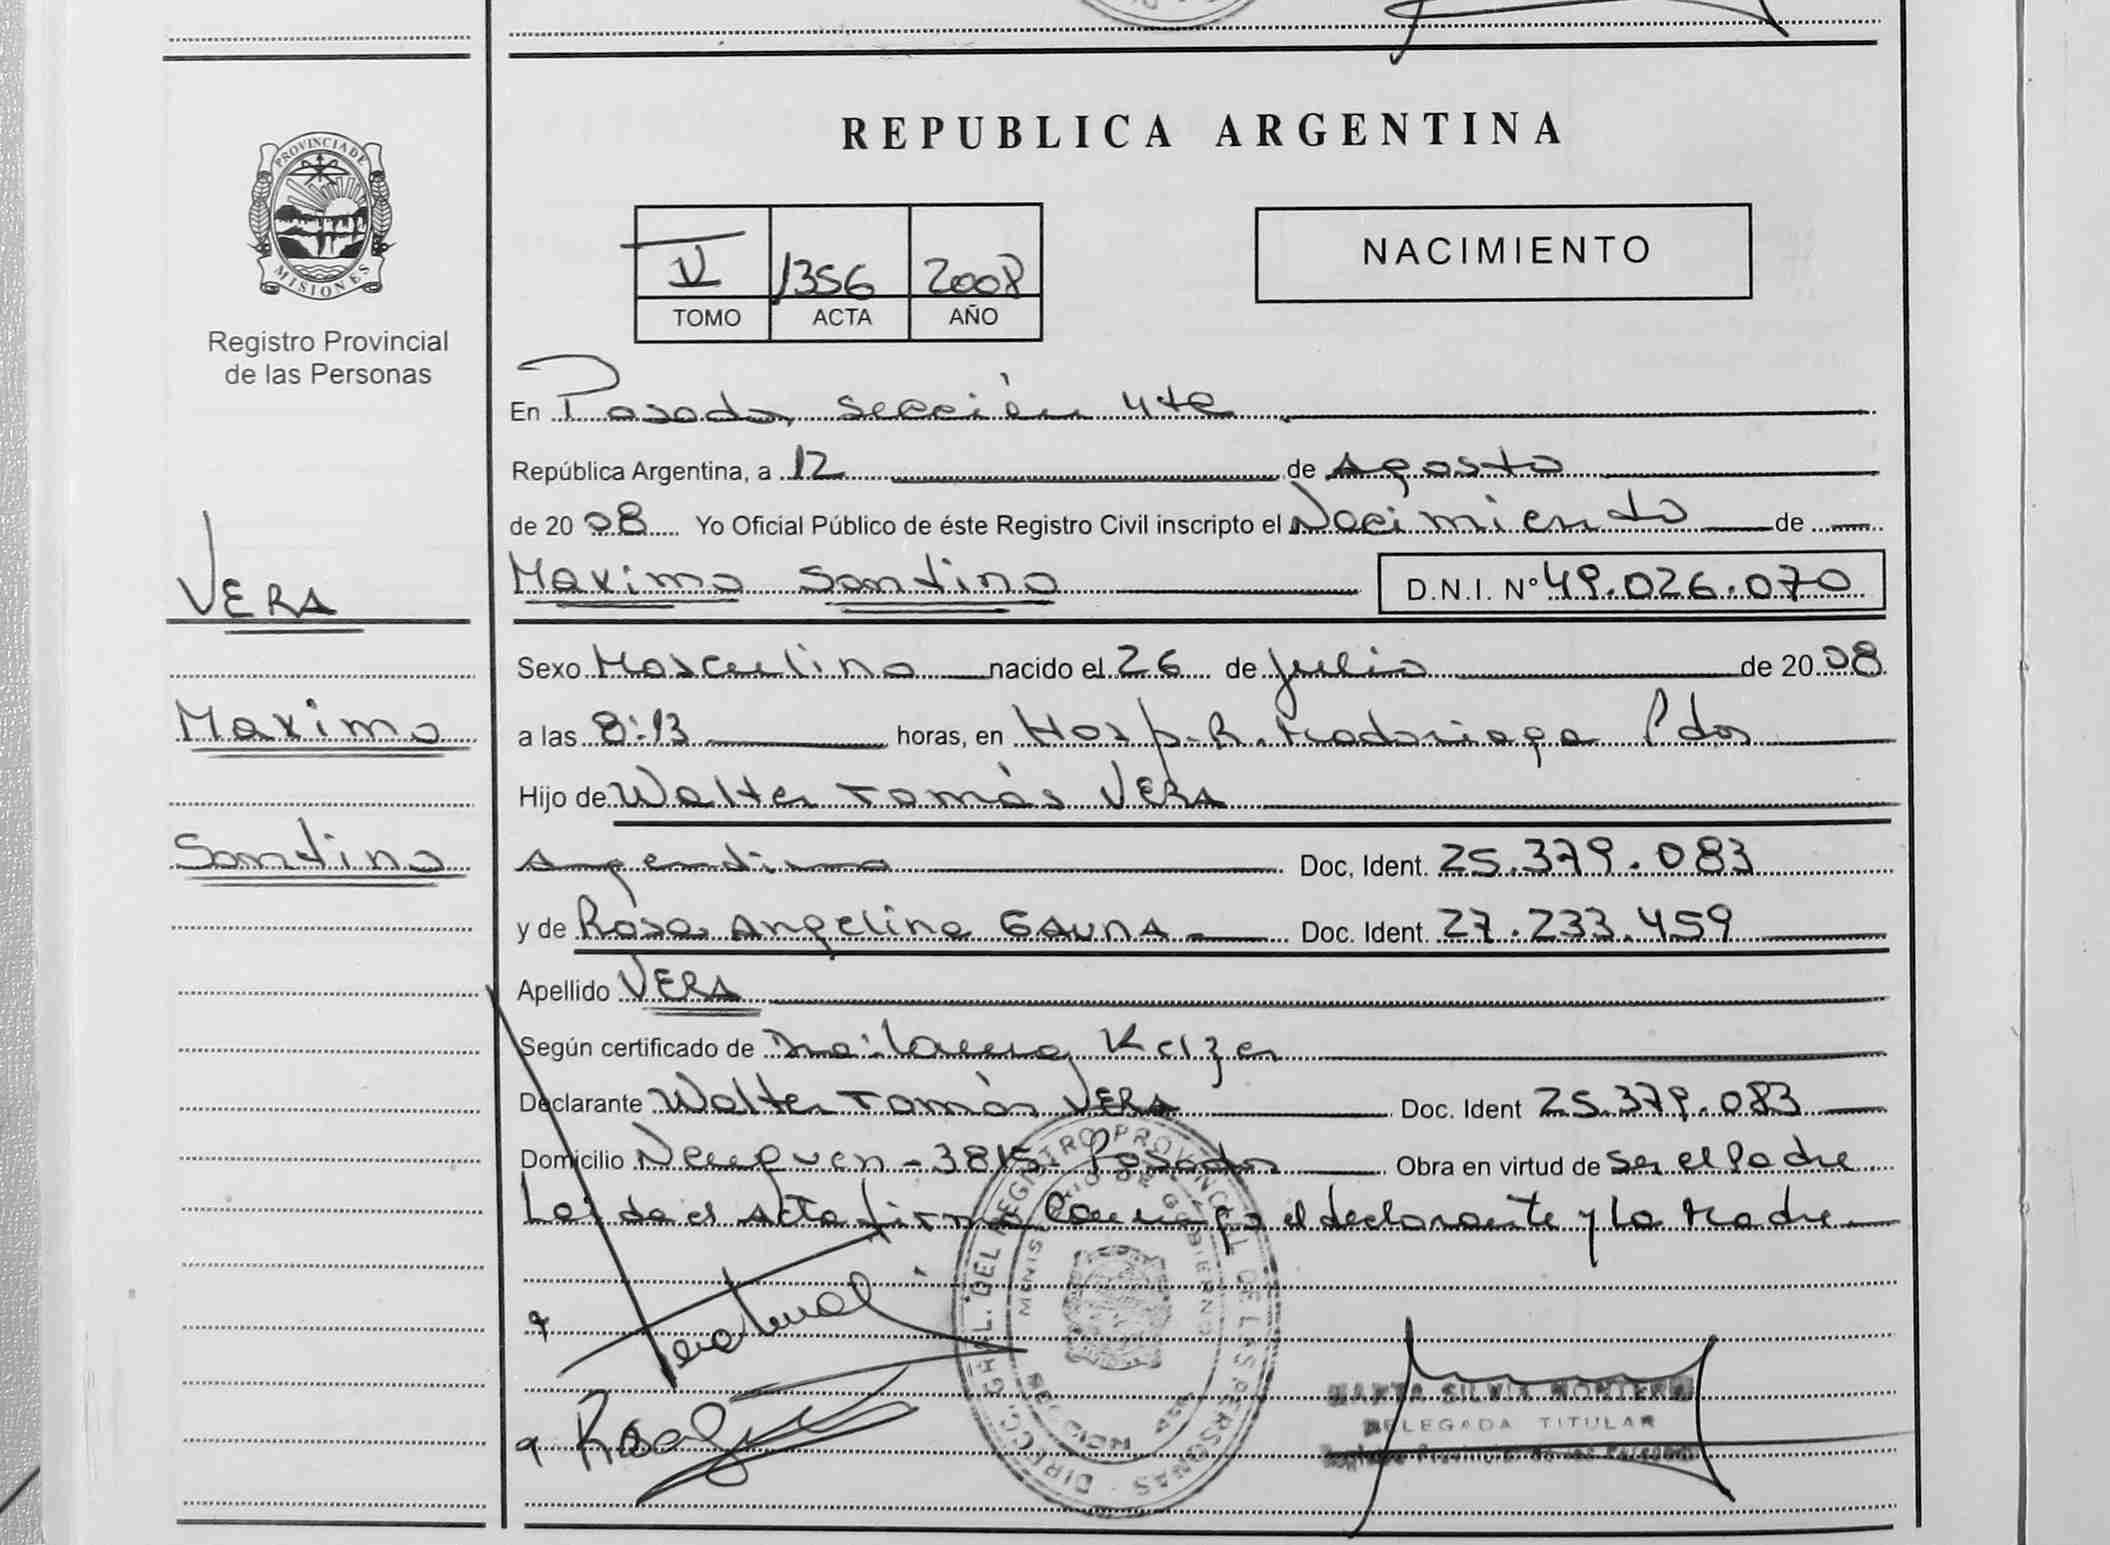 PROVINCIA DE
MISIONES
Registro Provincial
de las Personas
VERA
Maximo
Santino
REPUBLICA ARGENTINA
NACIMIENTO
1356 2008
TOMO ACTA AÑO
En Posadas, sección 4ta
República Argentina, a 12 de Agosto
de 2008 Yo Oficial Público de éste Registro Civil inscripto el Nacimiento de
Maximo Santino D.N.I. N° 49.026.070
Sexo Masculino nacido el 26 de Julio de 2008
a las 8:13 horas, en Hosp. R. Madariaga Pdas
Hijo de Walter Tomás VERA
Argentino Doc, Ident. 25.379.083
y de Rosa Angelina GAUNA Doc. Ident. 27.233.459
Apellido VERA
Según certificado de
Declarante Walter Tomás VERA Doc. Ident 25.379.083
Domicilio Neuquen - 3815 Posadas Obra en virtud de Ser el Padre
Leida el Acta firma Conmigo el declarante y La Madre
DIRECC. GRAL. DEL REGISTRO PROVINCIAL DE LAS PERSONAS
MINISTERIO DE GOBIERNO
MARTA SILVIA MONTERO
DELEGADA TITULAR
Registro Provincial de las Personas